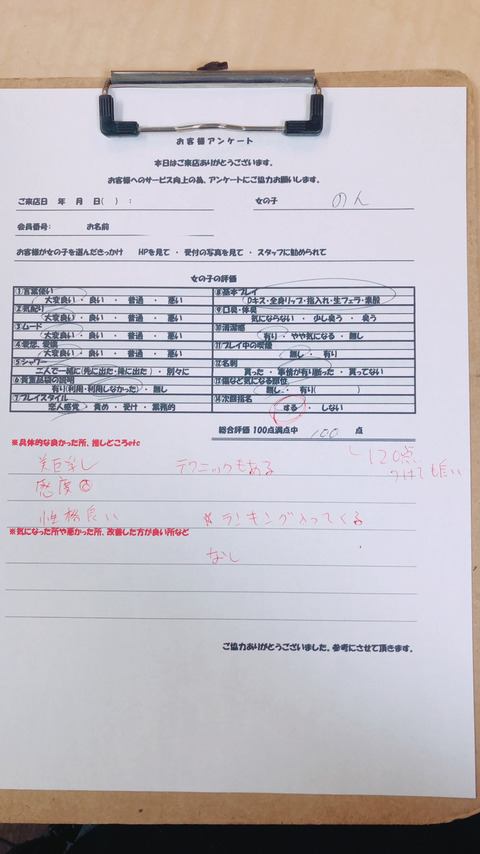 お客様アンケート
本日はご来店ありがとうございます。
お客様へのサービス向上の為、アンケートにご協力お願いします。
ご来店日 年 月 日( ) : 女の子 のん
会員番号: お名前
お客様が女の子を選んだきっかけ HPを見て ・ 受付の写真を見て ・ スタッフに勧められて
女の子の評価
①言葉使い
大変良い ・ 良い ・ 普通 ・ 悪い
②気配り
大変良い ・ 良い ・ 普通 ・ 悪い
③ムード
大変良い ・ 良い ・ 普通 ・ 悪い
④愛想、愛嬌
大変良い ・ 良い ・ 普通 ・ 悪い
⑤シャワー
二人で一緒に(先に出た・後に出た) ・ 別々に
⑥貴重品袋の説明
有り(利用・利用しなかった) ・ 無し
⑦プレイスタイル
恋人感覚 ・ 責め ・ 受け ・ 業務的
⑧基本プレイ
Dキス・全身リップ・指入れ・生フェラ・素股
⑨口臭・体臭
気にならない ・ 少し臭う ・ 臭う
⑩清潔感
有り ・ やや気になる ・ 無し
⑪プレイ中の喫煙
無し ・ 有り
⑫名刺
貰った ・ 事情が有り断った ・ 貰ってない
⑬傷など気になる部位
無し ・ 有り( )
⑭次回指名
する ・ しない
総合評価 100点満点中 100 点
※具体的な良かった所、推しどころetc
120点
つけても良い
美巨乳 テクニックもある
感度
性格良い ランキング入ってくる
※気になった所や悪かった所、改善した方が良い所など
なし
ご協力ありがとうございました。参考にさせて頂きます。